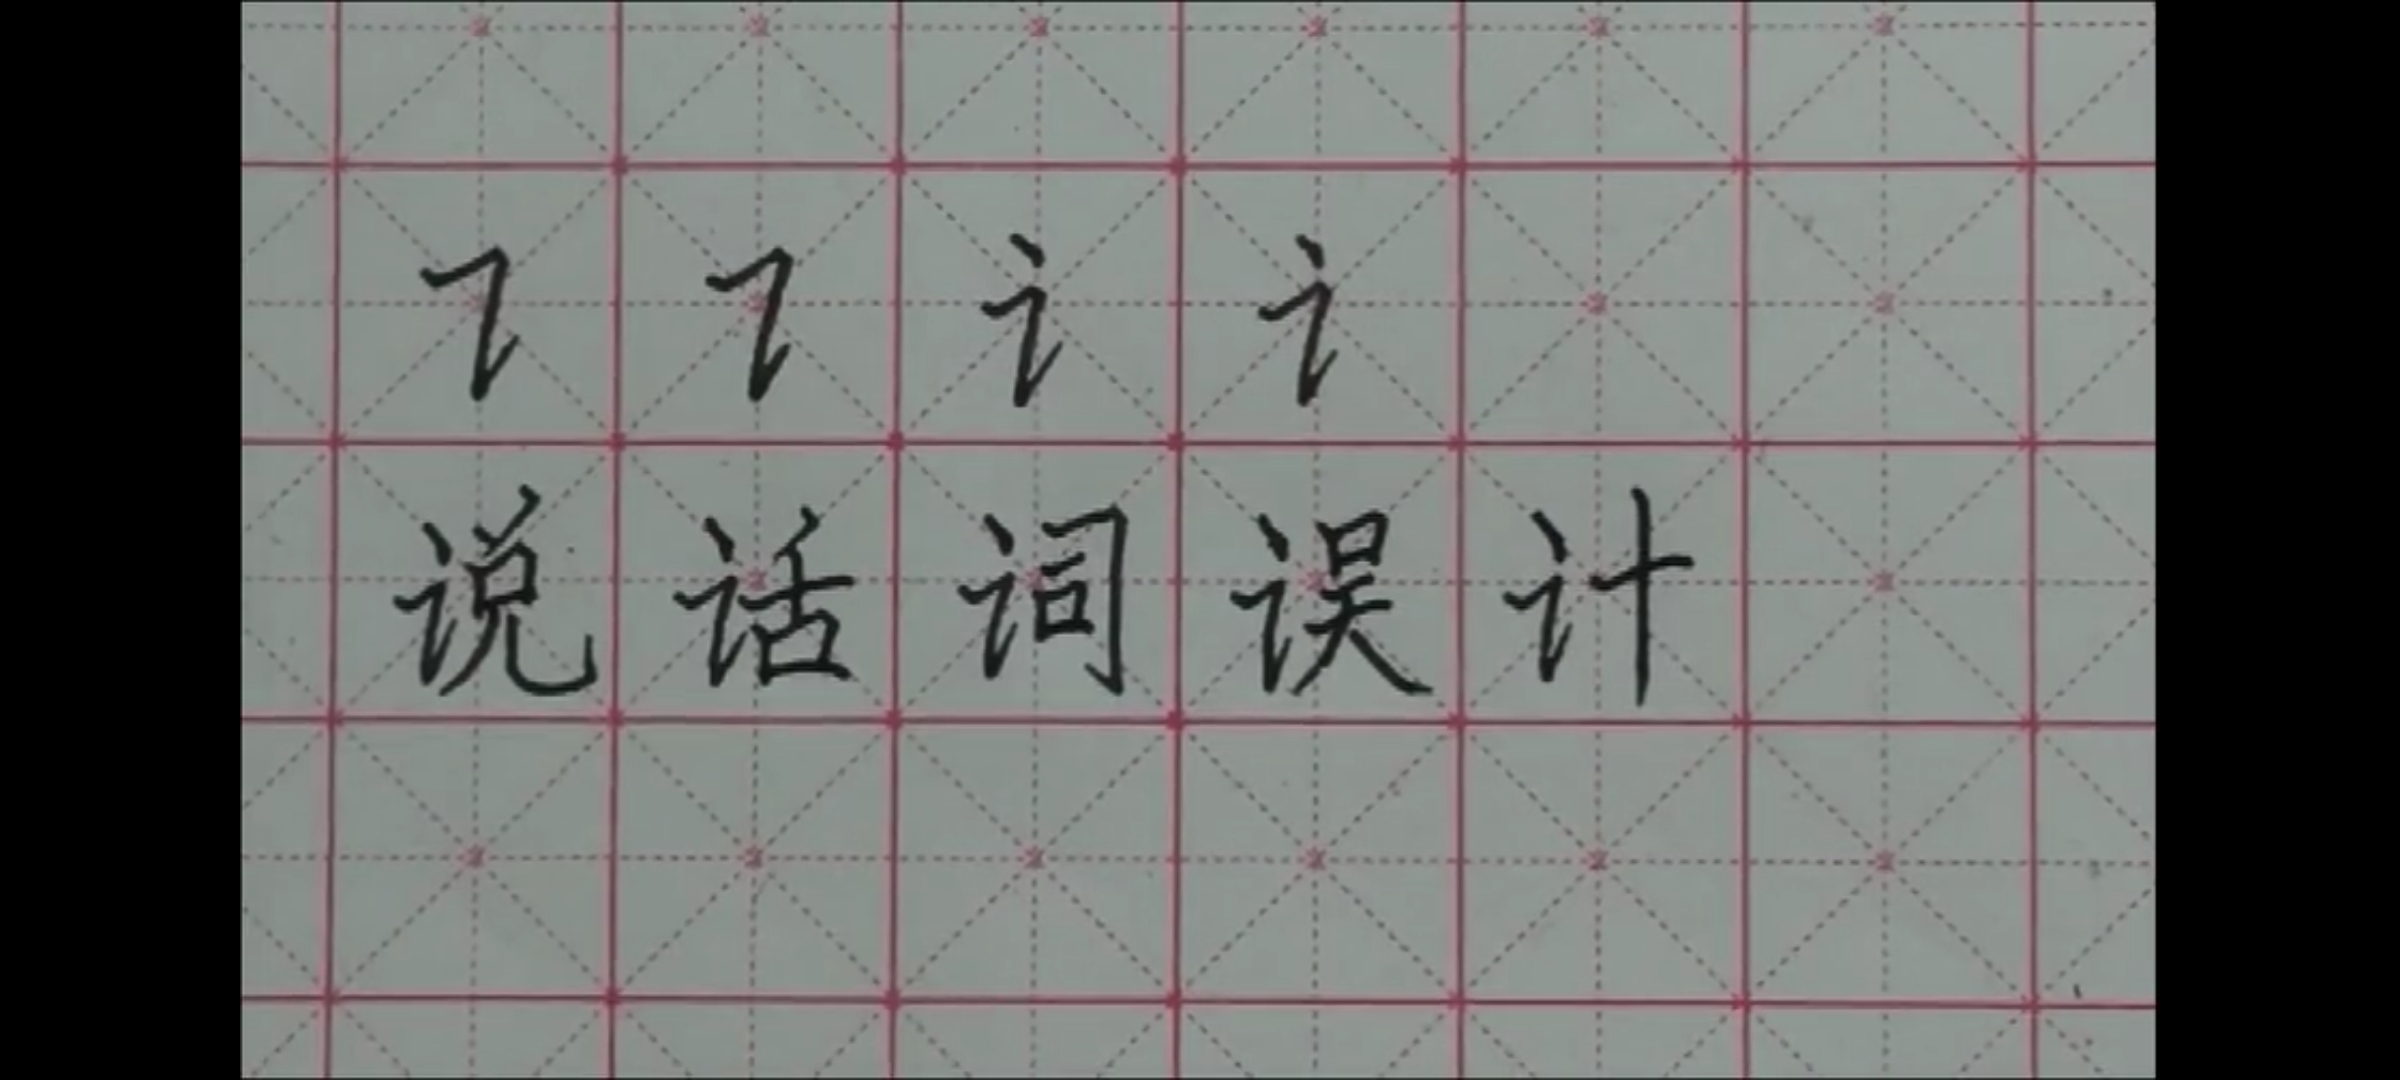 ㇊ ㇊ 讠 讠
说 话 词 误 计